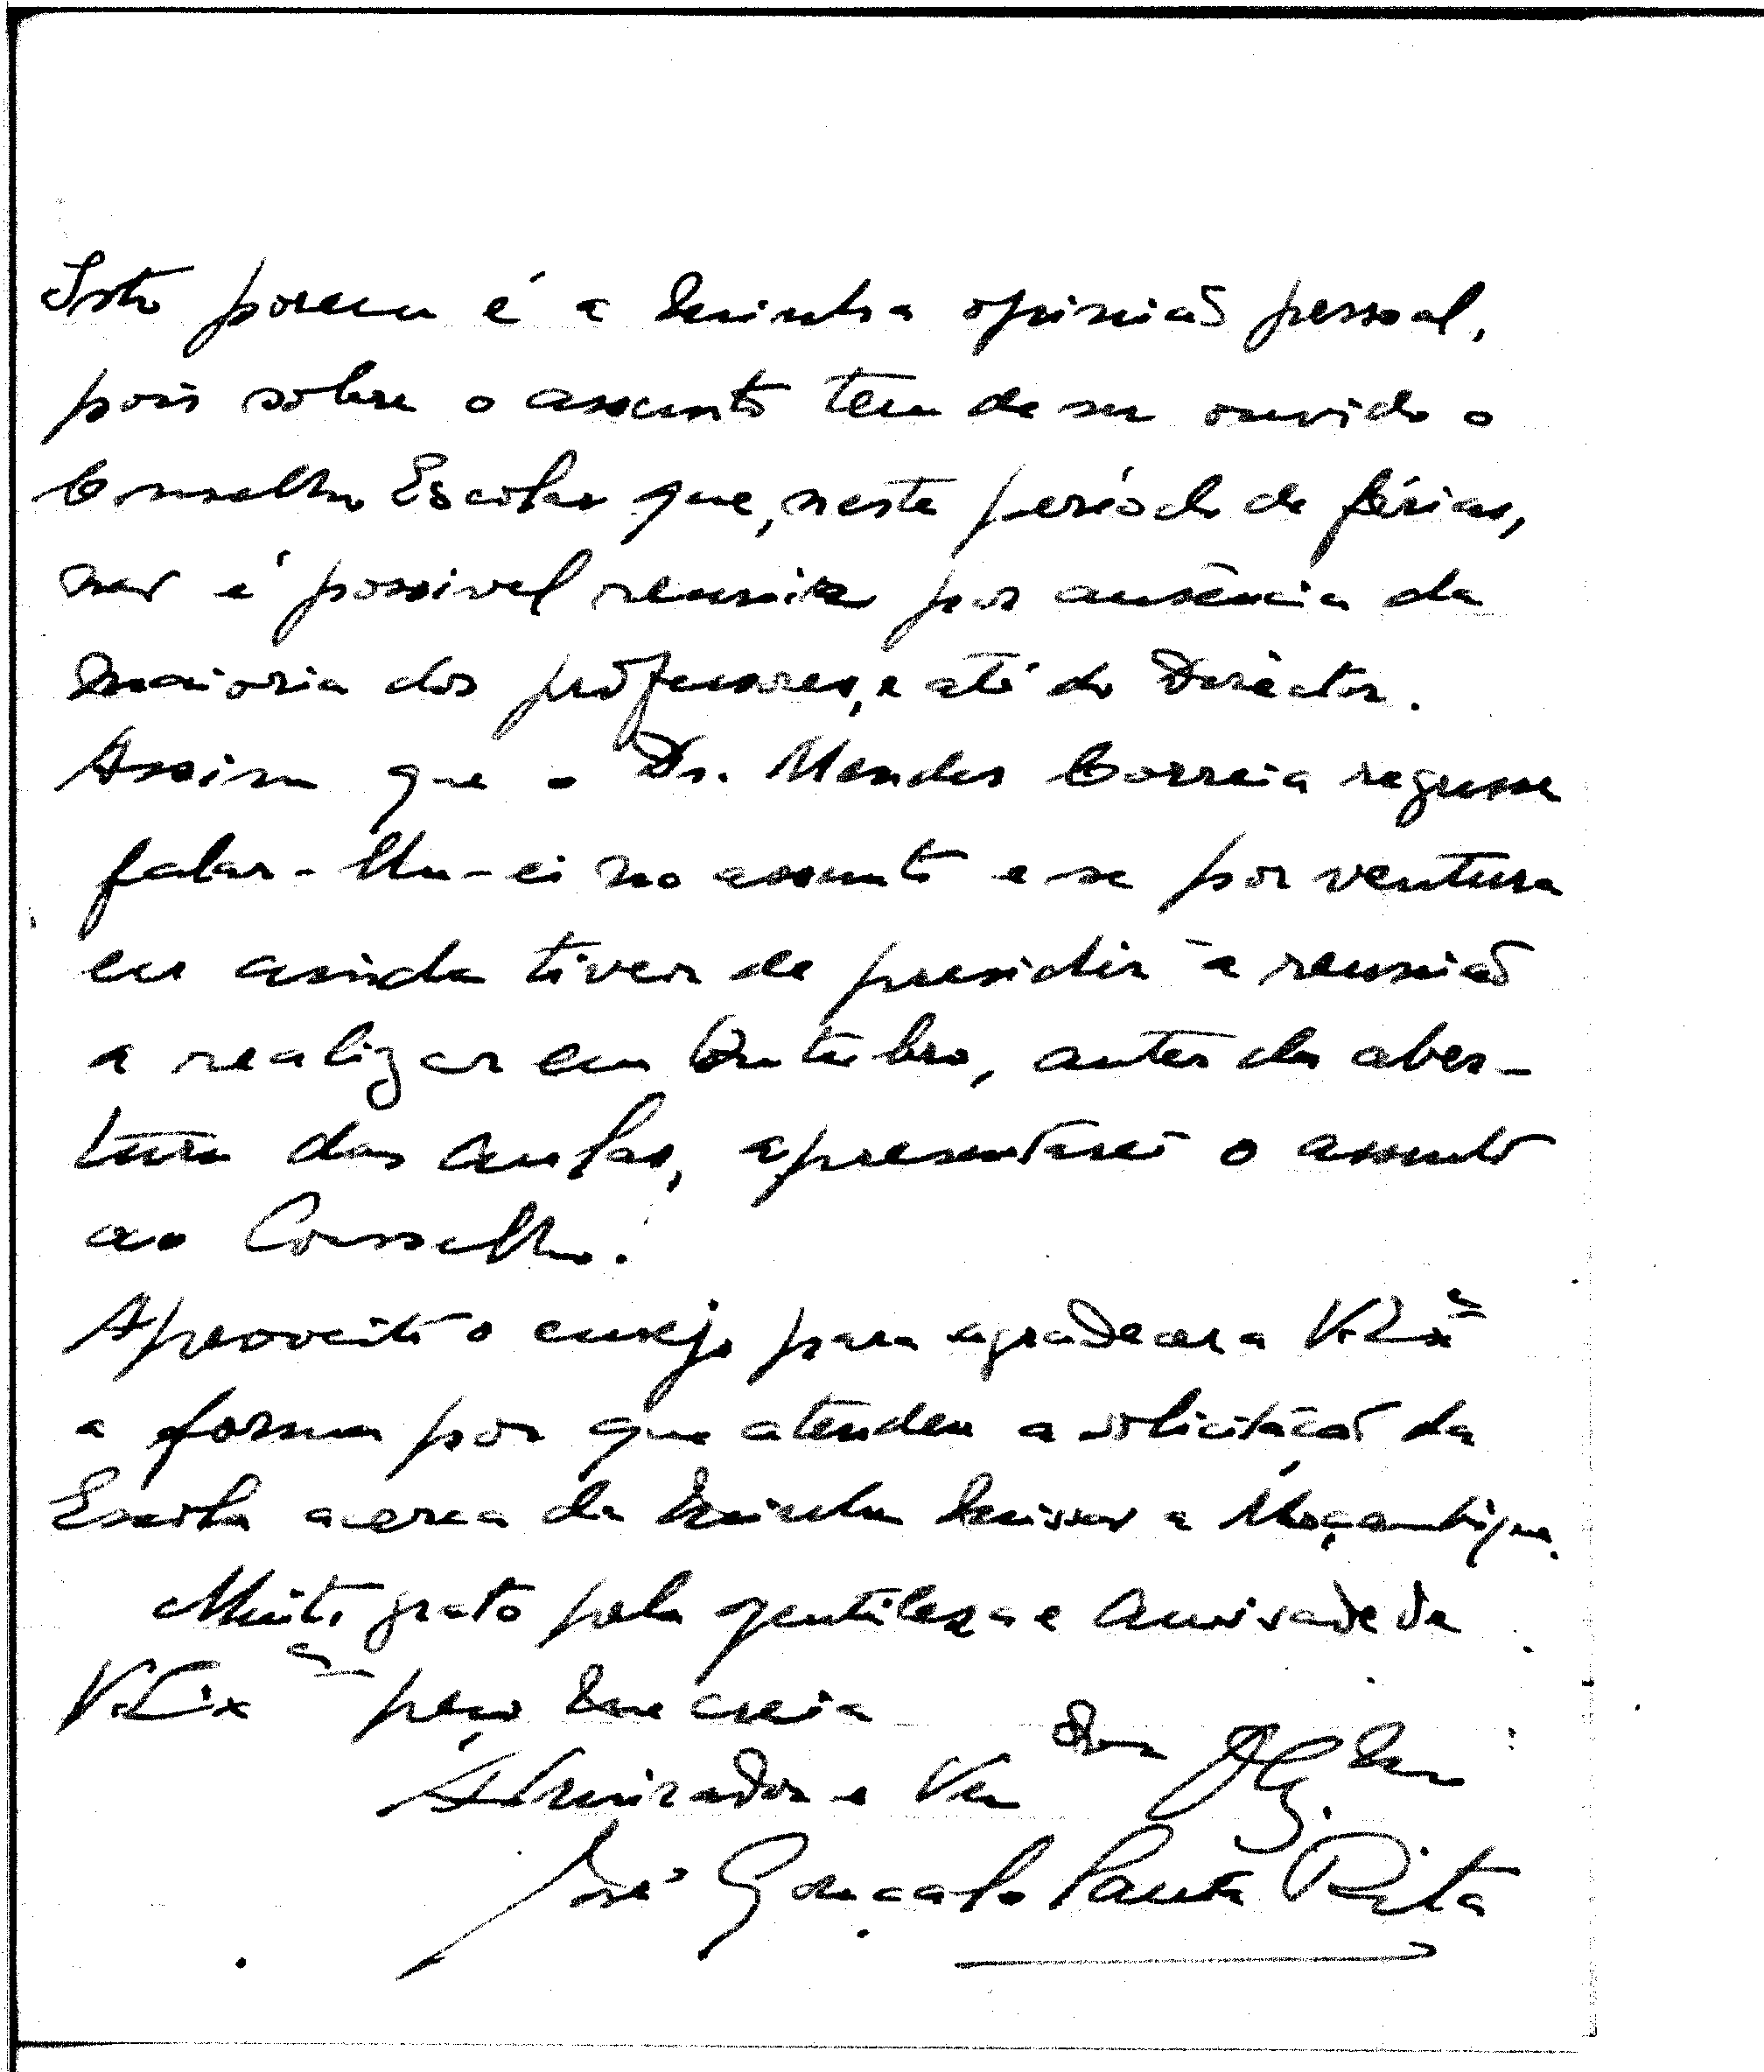 Isto porem é a minha opinião pessoal,
pois sobre o assunto tem de ser ouvido o
Conselho Escolar que, neste período de férias,
não é possivel reunir por ausência da
maioria dos professores, e até do Director.
Assim que o Dr. Mendes Correia regresse
falar-lhe-ei no assunto e se porventura
eu ainda tiver de presidir à reunião
a realizar em Outubro, antes da aber-
tura das aulas, apresentarei o assunto
ao Conselho.
Aproveito o ensejo para agradecer a V. Exª
a forma por que atendeu a solicitação da
Escola acerca da minha missão a Moçambique.
Muito grato pela gentileza e amisade de
V. Exª peço me creia
Admirador e
José Gonçalo Santa Rita